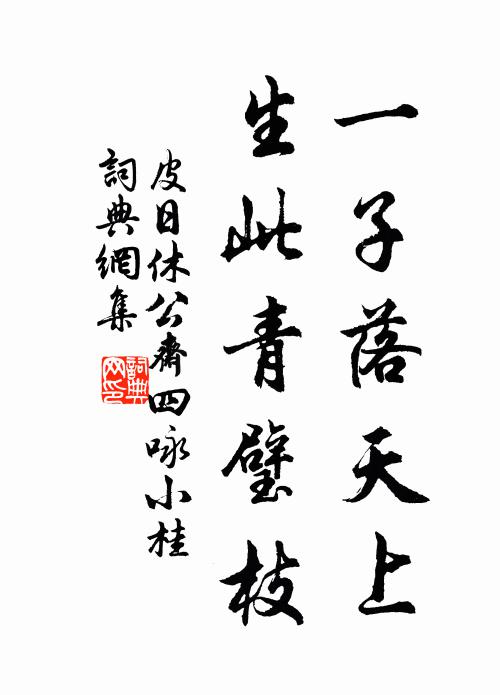 一子落天上
生此青璧枝
皮日休公齋四咏小桂
詞典網集
詞典
网印